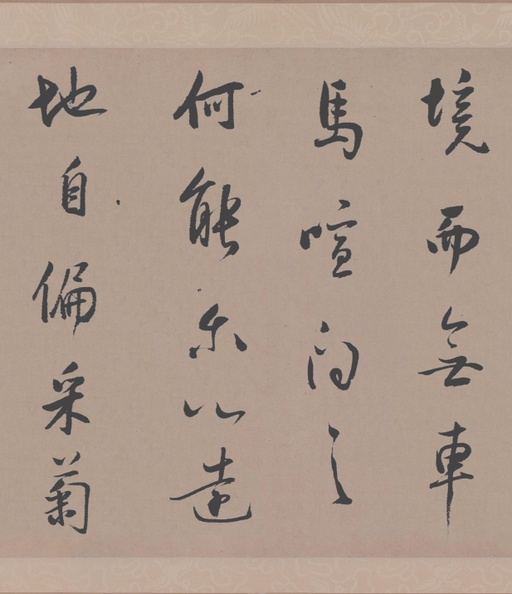 境而無車
馬喧問之
何能尔心遠
地自偏采菊